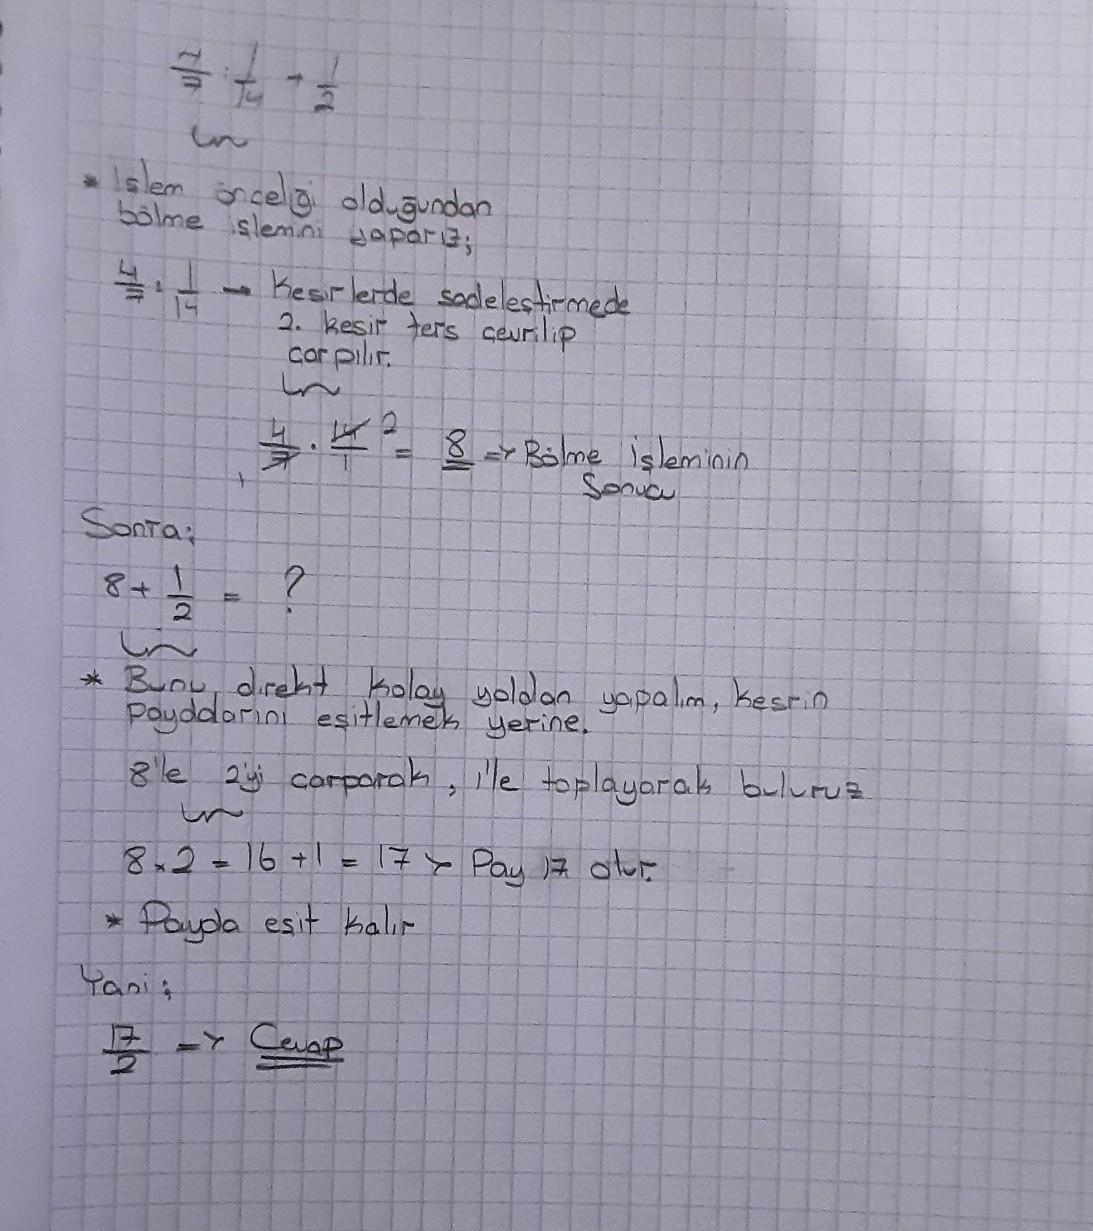 4/7 : 1/14 + 1/2
* İslem önceliği olduğundan
bölme islemini yaparız;
4/7 : 1/14 → Kesirlerde sadelestirmede
2. kesir ters çevrilip
çarpılır.
4/7 . 14/1 2 = 8 => Bölme işleminin
1
Sonucu
Sonra;
8 + 1/2 = ?
* Bunu direkt kolay yoldan yapalım, kesrin
payddarını esitlemek yerine.
8'le 2'yi carparak, 1'le toplayarak buluruz
8 x 2 = 16 + 1 = 17 > Pay 17 olur.
* Payda esit kalır
Yani;
17/2 => Cevap